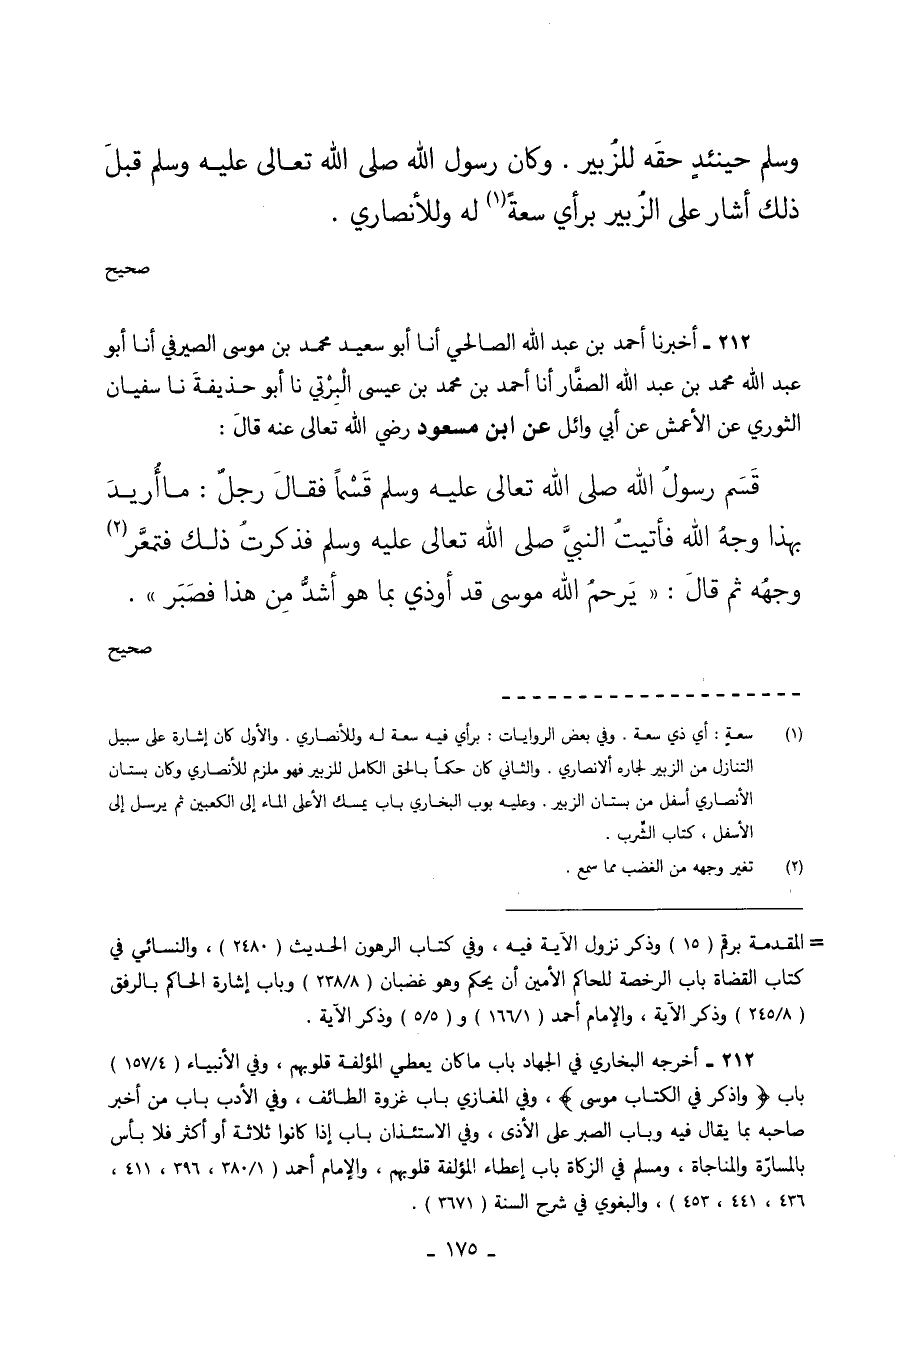 وسلم حينئذٍ حقَه للزُبير . وكان رسول الله صلى الله تعالى عليه وسلم قبلَ
ذلك أشار على الزُبير برأي سعةً(١) له وللأنصاري .
صحيح
٢١٢ ـ أخبرنا أحمد بن عبد الله الصالحي أنا أبو سعيد محمد بن موسى الصيرفي أنا أبو
عبد الله محمد بن عبد الله الصفَّار أنا أحمد بن محمد بن عيسى الْبِرْتي نا أبو حذيفةَ نا سفيان
الثوري عن الأعمش عن أبي وائل عن ابن مسعود رضي الله تعالى عنه قالَ :
قَسَم رسولُ الله صلى الله تعالى عليه وسلم قَسْماً فقالَ رجلٌ : ماأُريدَ
بهذا وجهُ الله فأتيتُ النبيَّ صلى الله تعالى عليه وسلم فذكرتُ ذلك فتمعَّر(٢)
وجهُه ثم قالَ : « يَرحمُ الله موسى قد أوذي بما هو أشدُّ مِن هذا فصَبَر » .
صحيح
(١) سعةٍ : أي ذي سعة . وفي بعض الروايات : برأي فيه سعة له وللأنصاري . والأول كان إشارة على سبيل
التنازل من الزبير لجاره ألانصاري . والثاني كان حكماً بالحق الكامل للزبير فهو ملزم للأنصاري وكان بستان
الأنصاري أسفل من بستان الزبير . وعليه بوب البخاري باب يمسك الأعلى الماء إلى الكعبين ثم يرسل إلى
الأسفل ، كتاب الشِّرب .
(٢) تغير وجهه من الغضب مما سمع .
= المقدمة برقم ( ١٥ ) وذكر نزول الآية فيه ، وفي كتاب الرهون الحديث ( ٢٤٨٠ ) ، والنسائي في
كتاب القضاة باب الرخصة للحاكم الأمين أن يحكم وهو غضبان ( ٢٣٨/٨ ) وباب إشارة الحاكم بالرفق
( ٢٤٥/٨ ) وذكر الآية ، والإمام أحمد ( ١٦٦/١ ) و ( ٥/٥ ) وذكر الآية .
٢١٢ ـ أخرجه البخاري في الجهاد باب ماكان يعطي المؤلفة قلوبهم ، وفي الأنبياء ( ١٥٧/٤ )
باب ﴿ واذكر في الكتاب موسى ﴾ ، وفي المغازي باب غزوة الطائف ، وفي الأدب باب من أخبر
صاحبه بما يقال فيه وباب الصبر على الأذى ، وفي الاستئذان باب إذا كانوا ثلاثة أو أكثر فلا بأس
بالمسارّة والمناجاة ، ومسلم في الزكاة باب إعطاء المؤلفة قلوبهم ، والإمام أحمد ( ٣٨٠/١ ، ٣٩٦ ، ٤١١ ،
٤٣٦ ، ٤٤١ ، ٤٥٣ ) ، والبغوي في شرح السنة ( ٣٦٧١ ) .
ـ ١٧٥ ـ